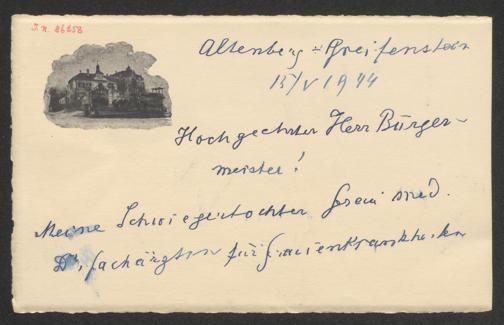 J.N. 86258
Altenberg-Greifenstein
15/V 1944
Hochgeehrter Herr Bürger-
meister!
Meine Schwiegertochter Frau med.
Dr., Fachärztin für Frauenkrankheiten